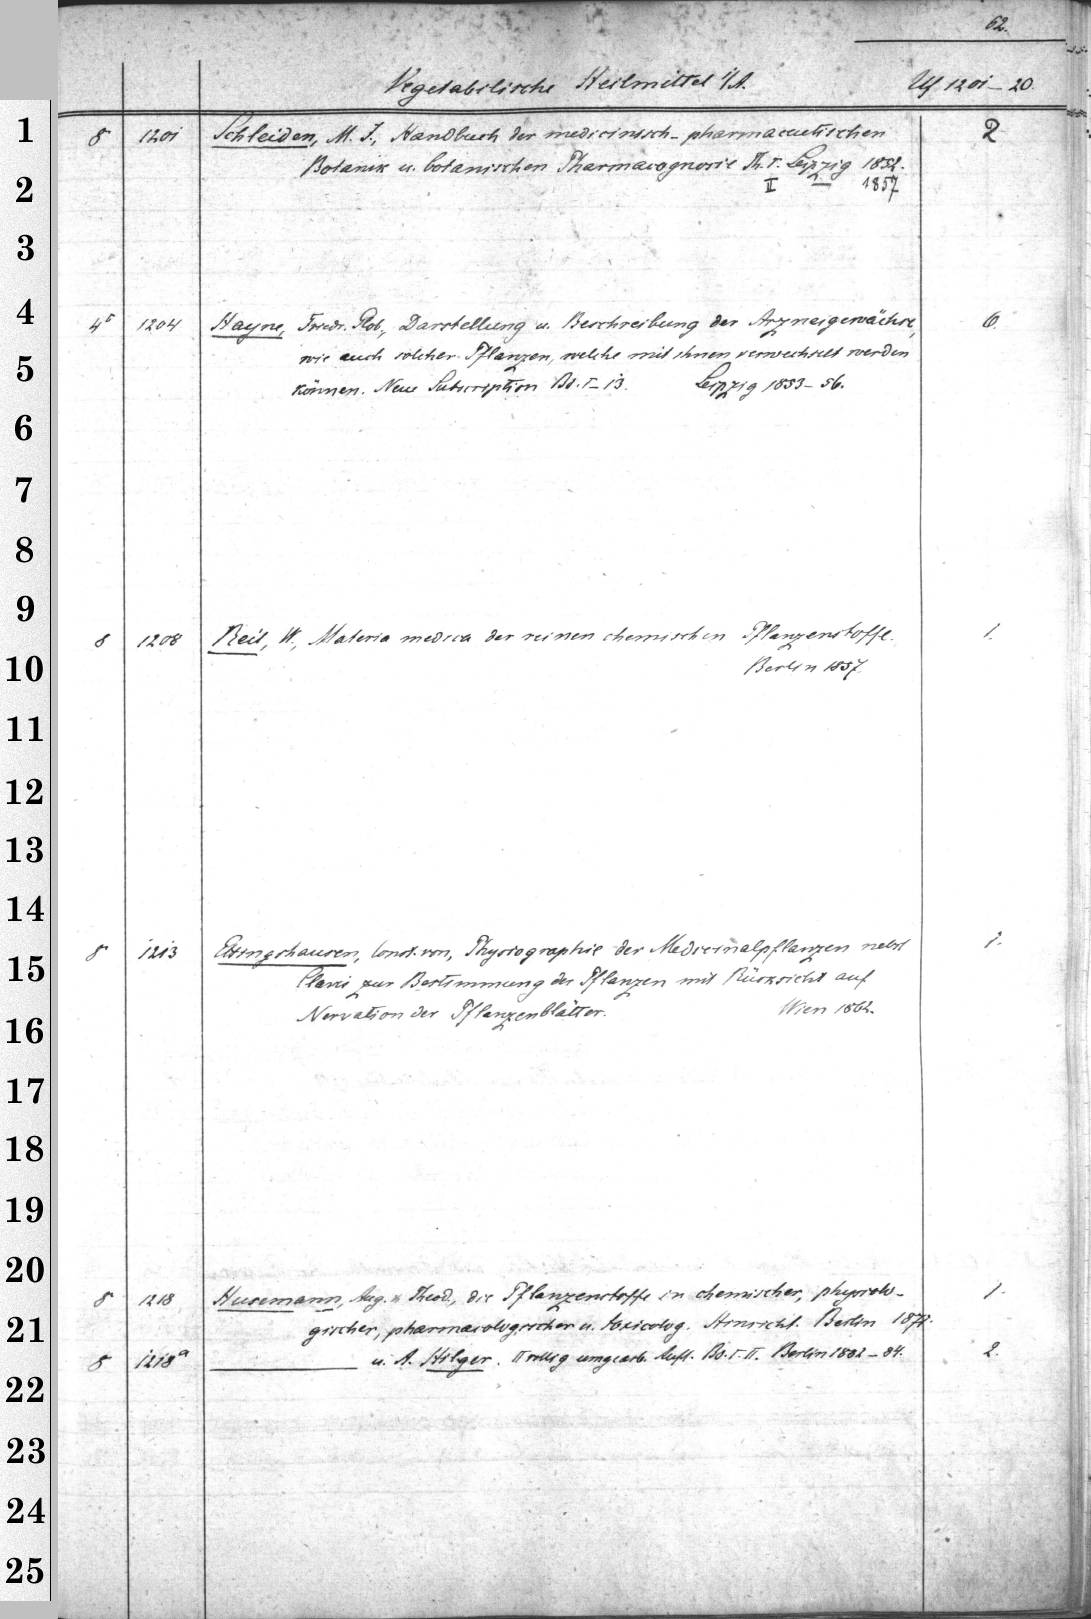 62.
Vegetabilische Heilmittel i/A. Uf 1201–20.
1
8 1201 Schleiden, M. J., Handbuch der medicinisch-pharmaceutischen 2
Botanik u. botanischen Pharmacognosie Th. I. Leipzig 1852.
II — 1857
2
3
4
4° 1204 Hayne, Friedr. Rob., Darstellung u. Beschreibung der Arzneigewächse, 6.
wie auch solcher Pflanzen, welche mit ihnen verwechselt werden
5
können. Neue Subscription Bd. I–13. Leipzig 1853–56.
6
7
8
9
8 1208 Reil, W., Materia medica der reinen chemischen Pflanzenstoffe. 1.
10
Berlin 1857.
11
12
13
14
8 1213 Ettingshausen, Const. von, Physiographie der Medicinalpflanzen nebst 1.
15
Clavis zur Bestimmung der Pflanzen mit Rücksicht auf
Nervation der Pflanzenblätter. Wien 1862.
16
17
18
19
20
8 1218 Husemann, Aug. u. Theod., die Pflanzenstoffe in chemischer, physiolo- 1.
21
gischer, pharmacologischer u. toxicolog. Hinsicht. Berlin 1871.
8 1218a u. A. Hilger. II völlig umgearb. Aufl. Bd. I–II. Berlin 1882–84. 2.
22
23
24
25